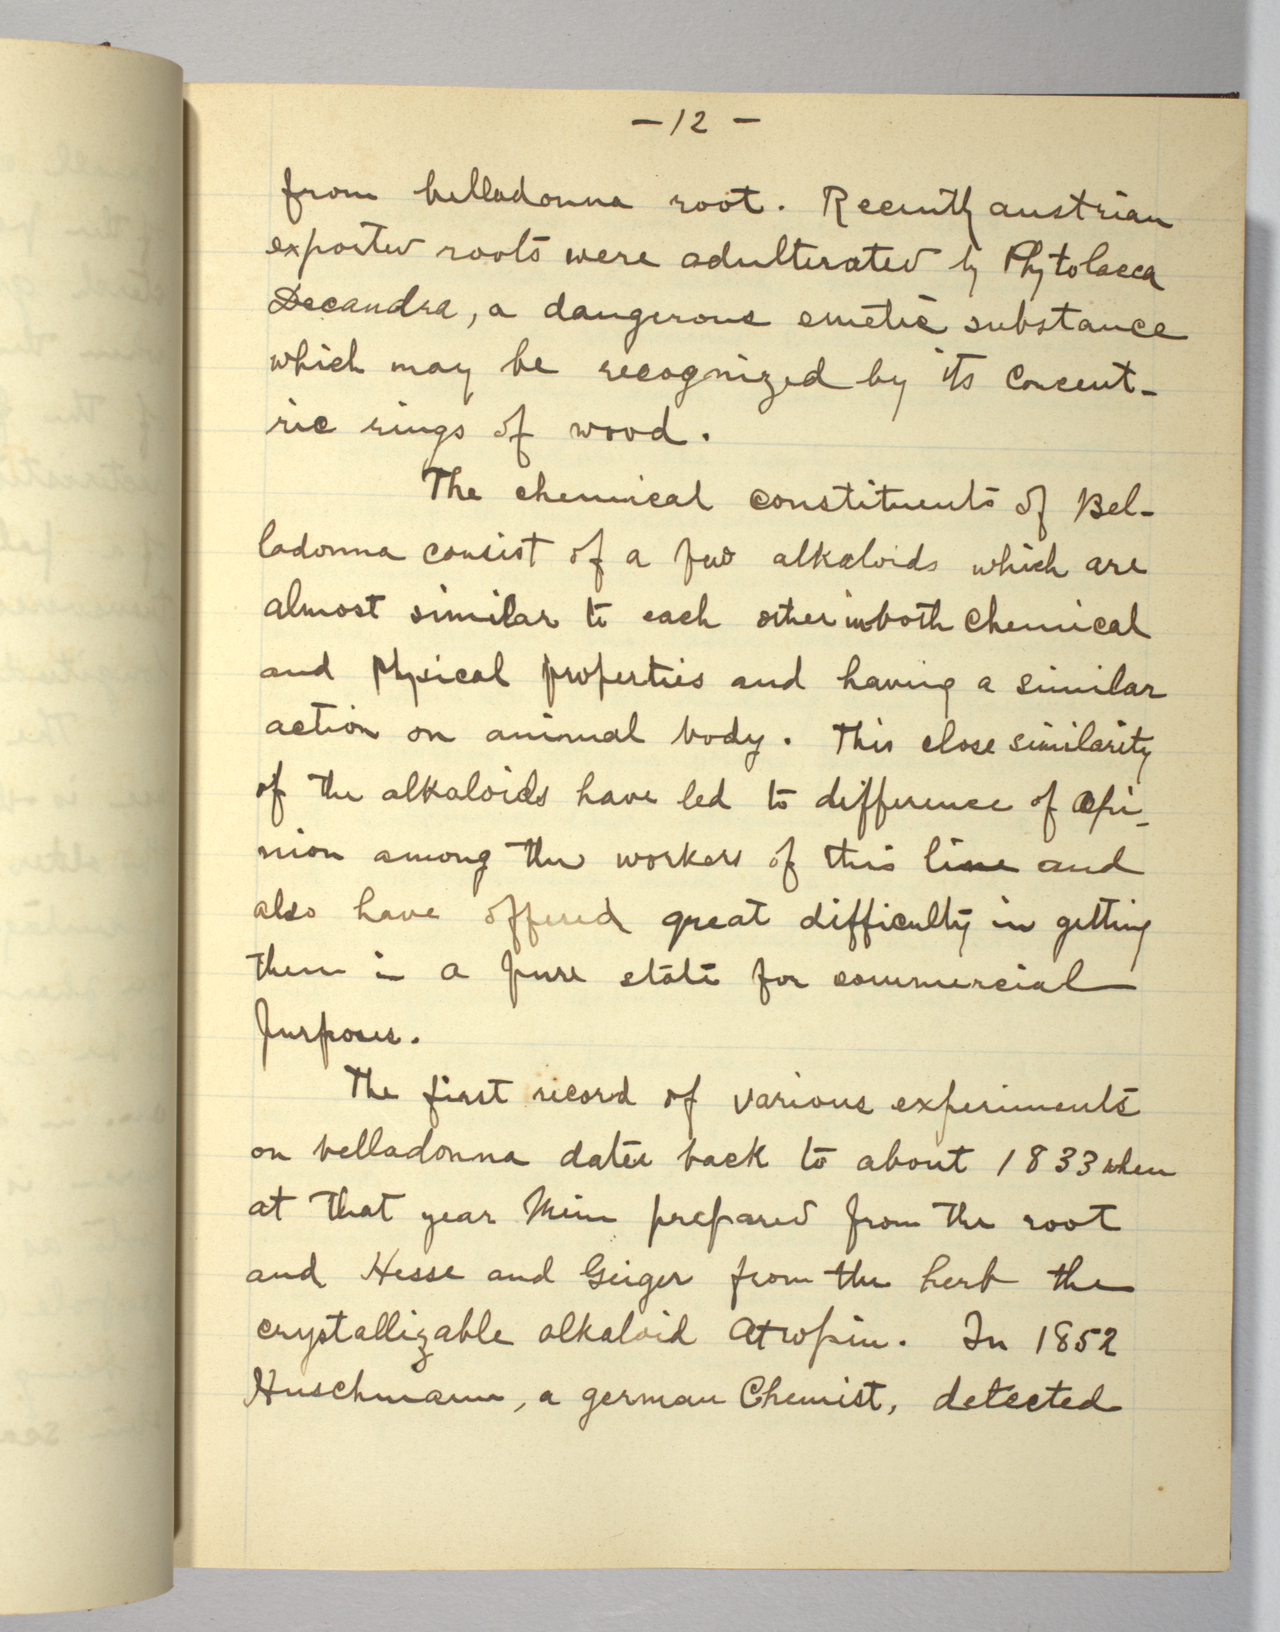 -12-
from belladonna root. Recently austrian
exported roots were adulterated by Phytolacca
Decandra, a dangerous emetic substance
which may be recognized by its concent-
ric rings of wood.
The chemical constituents of Bel-
ladonna consist of a few alkaloids which are
almost similar to each other in both chemical
and Physical properties and having a similar
action on animal body. This close similarity
of the alkaloids have led to difference of opi-
nion among the workers of this line and
also have offered great difficulty in getting
them in a pure state for commercial
purposes.
The first record of various experiments
on belladonna dates back to about 1833 when
at that year Mein prepared from the root
and Hesse and Geiger from the herb the
crystallizable alkaloid Atropin. In 1852
Huschmann, a german Chemist, detected